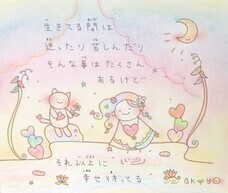 生きてる間は
迷ったり苦しんだり
そんな事はたくさん
あるけど
それ以上に
幸せり待ってる